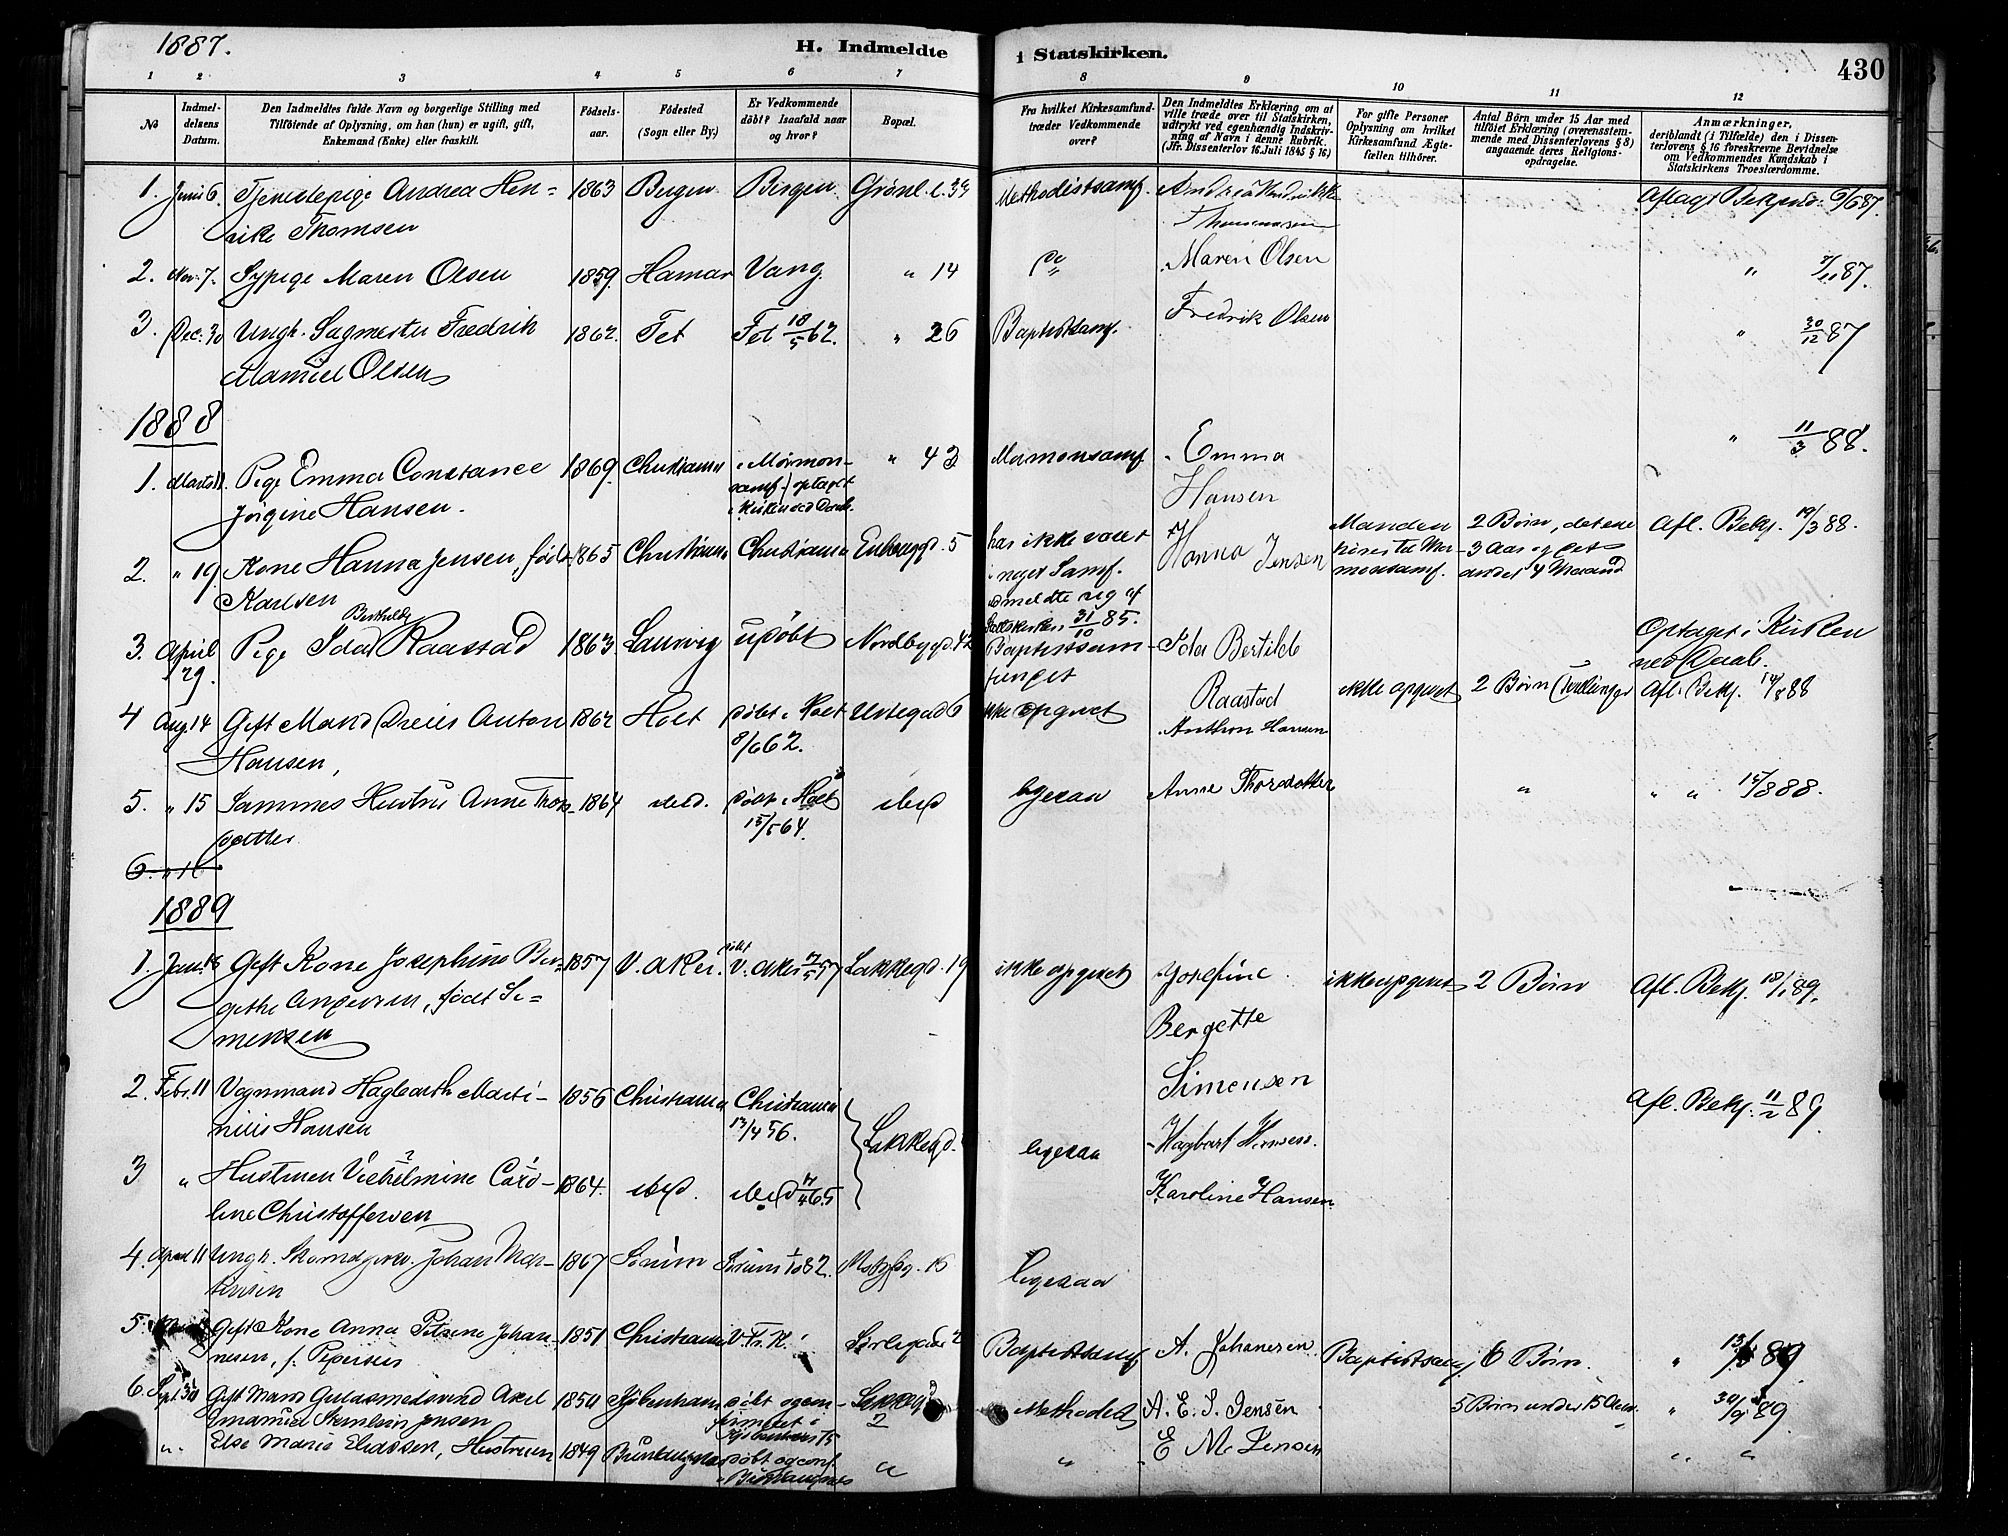 1887.
H. Indmeldte
i Statskirken.
430
1 2 3 4 5 6 7 8 9 10 11 12
No
Indmel-
delsens
Datum.
Den Indmeldtes fulde Navn og borgerlige Stilling med
Tilföiende af Oplysning, om han (hun) er ugift, gift,
Enkemand (Enke) eller fraskilt.
Födsels-
aar.
Födested
(Sogn eller By.)
Er Vedkommende
döbt? Isaafald naar
og hvor?
Bopæl.
Fra hvilket Kirkesamfund
træder Vedkommende
over?
Den Indmeldtes Erklæring om at
ville træde over til Statskirken,
udtrykt ved egenhændig Indskriv-
ning af Navn i denne Rubrik.
(Jfr. Dissenterlov 16. Juli 1845 § 16)
For gifte Personer
Oplysning om hvilket
Kirkesamfund Ægte-
fællen tilhörer.
Antal Börn under 15 Aar med
tilföiet Erklæring (overensstem-
mende med Dissenterlovens § 8)
angaaende deres Religions-
opdragelse.
Anmærkninger,
deriblandt (i Tilfælde) den i Dissen-
terlovens § 16 foreskrevne Bevidnelse
om Vedkommendes Kundskab i
Statskirkens Troeslærdomme.
1. Juni 6. Tjenestepige Andrea Hen- 1863 Bergen Bergen Grönl. l. 39 Methodistsamf. Andrea Hendrikke Aflagt Bekjend. 6/6 87.
rike Thomsen
2. Nov. 7. Sypige Maren Olsen 1859. Hamar Vang. " 14 do " Maren Olsen " 7/11 87.
3. Dec. 30 Ungk. Sagmester Fredrik 1862. Fet Fet 18/5 62. " 26 Baptistsamf. Fredrik Olsen " 30/12 87
Olsen
1888
1. Marts 11. Pige Emma Constance 1869. Christiania i Mormon- " 43 Mormonsamf. Emma " 11/3 88.
Jörgine Hansen. samf. optaget Hansen
i Kirken ved Daab.
2. " 19 Kone Hanna Jensen, föd 1865 Christiania Christiania Enbaugd. 5 har ikke været Hanna Jensen Manden 2 Börn, det ene Afl. Bekj. 19/3 88.
Karlsen i noget Samf. hörer til Mor- 3 Aar og det
udmeldte sig af monsamf. andet 4 Maaned
Statskirken 31/10 85.
Berthilde
3. April 29. Pige Ida Raastad 1863 Laurvig udöbt Nordbygd. 42 Baptistsam- Ida Bertilde Optaget i Kirken
fundet Raastad ved Daab.
4 Aug. 14 Gift Mand Anton 1862 Holt döbt i Holt Urtegad 6 ikke opgivet Anthon Hansen ikke opgivet 2 Börn (Tvillinger Afl. Bekj. 14/8 88
Hansen, 8/6 62.
5. " 15 Sammes Hustru Anne Thors- 1864 ibid. döbt i Holt ibid ligesaa Anne Thorsdatter " " " 15/8 88.
datter 15/5 64.
1889
1. Jan. 18 Gift Kone Josephine Ber- 1857 V. Aker. döbt V. Aker 17/5 57 Lakkegd. 19 ikke opgivet Josefine ikke opgivet 2 Börn Afl. Bekj. 18/1 89.
gethe Andersen, födt Si- Bergette
mensen Simensen
2. Febr. 11 Vognmand Hagbarth Marti- 1856 Christiania Christiania Lakkegd. ligesaa Hagbart Hansen. Afl. Bekj. 11/2 89.
nius Hansen 13/4 56.
3 " Hustruen Vilhelmine Caro- 1864. ibid. ibid Karoline Hansen
line Christoffersen
4. April 11 Ungk. Johan Mar- 1867 Sörum Sörum ligesaa
tinsen
5. Gift Kone Anna Johan- 1851 Christiania V. Fr. K. Sörligade 2 Baptistsamf A. Johanesen Baptistsamf 6 Börn. " 89
nesen, f. Pedersen
6. Sept. 30 Gift Mand Guldsmedsvend Axel 1850 Kjöbenhavn döbt og con- Lakkegd Methodist A. E. S. Jensen 5 Börn under 15 Aar. " 30/9 89.
Emanuel Jensen firmeret i 2
Kjöbenhavn
" Else Marie Eliassen, Hustruen 1849 döbt og conf. " " E M Jensen " "